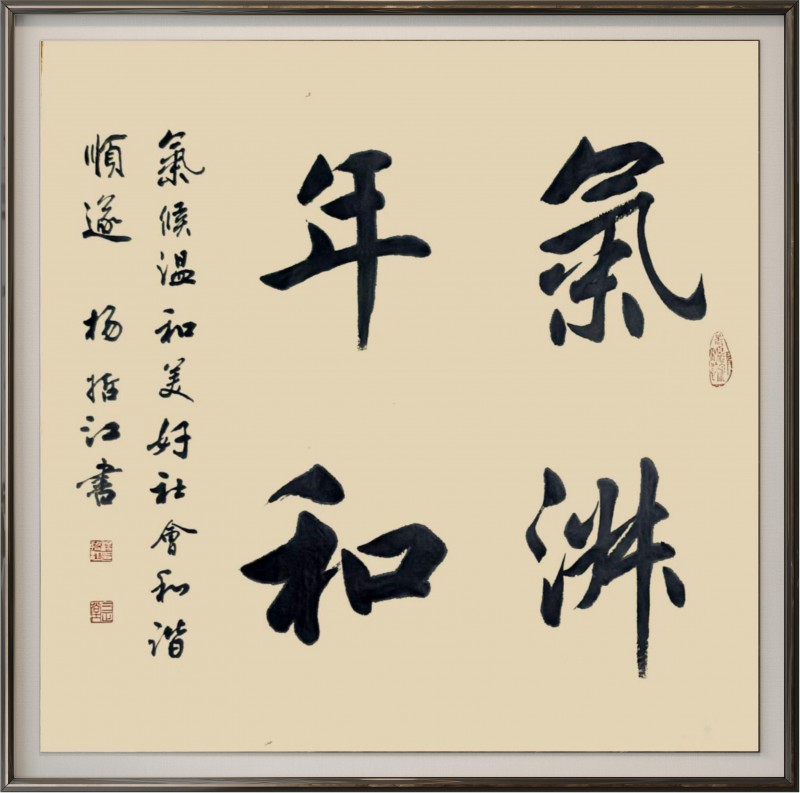 氣淋
年和
氣候温和美好社會和谐
順遂 杨哲江書